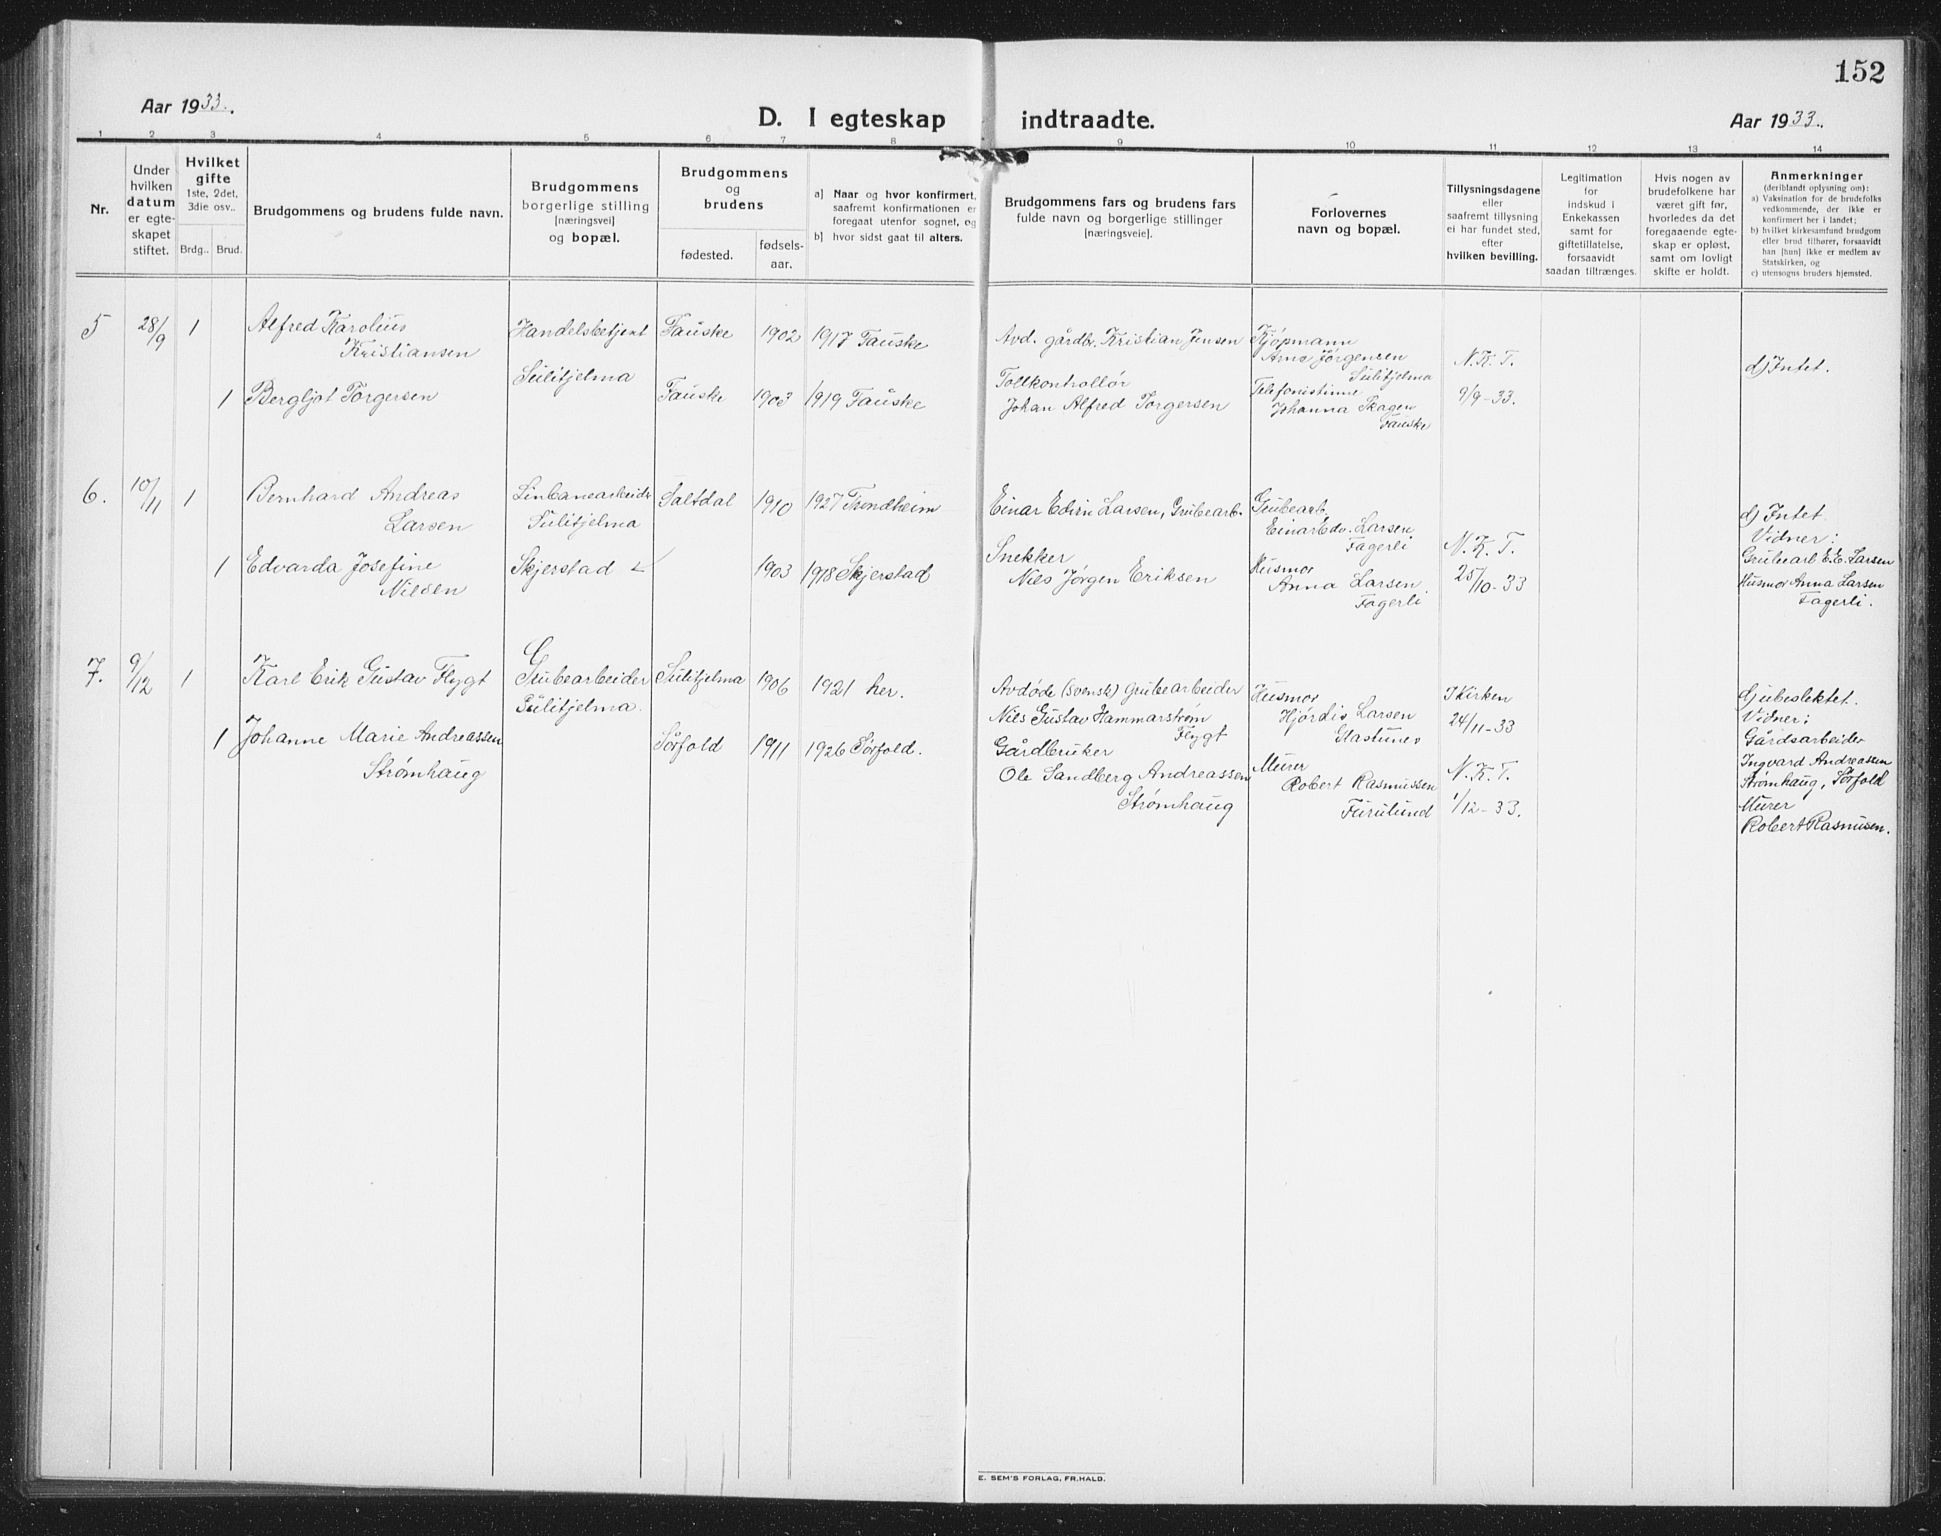 152
Aar 1933.
D. I egteskap indtraadte.
Aar 1933.
1 2 3 4 5 6 7 8 9 10 11 12 13 14
Nr.
Under
hvilken
datum
er egte-
skapet
stiftet.
Hvilket
gifte
1ste, 2det,
3die osv..
Brdg.. Brud.
Brudgommens og brudens fulde navn.
Brudgommens
borgerlige stilling
[næringsvei]
og bopæl.
Brudgommens
og
brudens
fødested.
fødsels-
aar.
a] Naar og hvor konfirmert,
saafremt konfirmationen er
foregaat utenfor sognet, og
b] hvor sidst gaat til alters.
Brudgommens fars og brudens fars
fulde navn og borgerlige stillinger
[næringsveie].
Forlovernes
navn og bopæl.
Tillysningsdagene
eller
saafremt tillysning
ei har fundet sted,
efter
hvilken bevilling.
Legitimation
for
indskud i
Enkekassen
samt for
giftetillatelse,
forsaavidt
saadan tiltrænges.
Hvis nogen av
brudefolkene har
været gift før,
hvorledes da det
foregaaende egte-
skap er opløst,
samt om lovligt
skifte er holdt.
Anmerkninger
(deriblandt oplysning om):
a) Vaksination for de brudefolks
vedkommende, der ikke er
konfirmert her i landet;
b) hvilket kirkesamfund brudgom
eller brud tilhører, forsaavidt
han [hun] ikke er medlem av
Statskirken, og
c) utensogns bruders hjemsted.
5 28/9 1
Alfred Karolius
Kristiansen
Handelsbetjent
Sulitjelma
Fauske 1902 1917 Fauske
Avd. gårdbr. Kristian Jensen
Kjøpmann
Arne Jørgensen
Sulitjelma
N.K.T.
9/9-33.
d) Intet.
1 Bergljot Torgersen
Fauske 1903 1919 Fauske
Tollkontrollør
Johan Alfred Torgersen
Telefonistinne
Johanna Skagen
Fauske
6. 10/11 1
Bernhard Andreas
Larsen
Linbanearbeider
Sulitjelma
Saltdal 1910 1927 Trondheim
Einar Edvin Larsen, Grubearb.
Grubearb.
Einar Edv. Larsen
Fagerli
N.K.T.
25/10-33
d) Intet.
Vidner:
Grubearb E.E. Larsen
Husmor Anna Larsen
Fagerli.
1 Edvarda Josefine
Nilsen
Skjerstad
1903 1918 Skjerstad
Snekker
Nils Jørgen Eriksen
Husmor
Anna Larsen
Fagerli
7. 9/12 1
Karl Erik Gustav Flygt
Grubearbeider
Sulitjelma.
Sulitjelma 1906 1921 her.
Avdøde (svensk) Grubearbeider
Nils Gustav Hammarstrøm
Flygt
Husmor
Hjørdis Larsen
Glastunes
I Kirken
24/11-33
d) ubeslektet.
Vidner:
Gårdsarbeider
Ingvard Andreassen
Strømhaug, Sørfold
Murer
Robert Rasmusen.
1 Johanne Marie Andreassen
Strømhaug
Sørfold 1911 1926 Sørfold.
Gårdbruker
Ole Sandberg Andreassen
Strømhaug
Murer
Robert Rasmussen
Furulund
N.K.T.
1/12-33.
E. SEM'S FORLAG, FR.HALD.